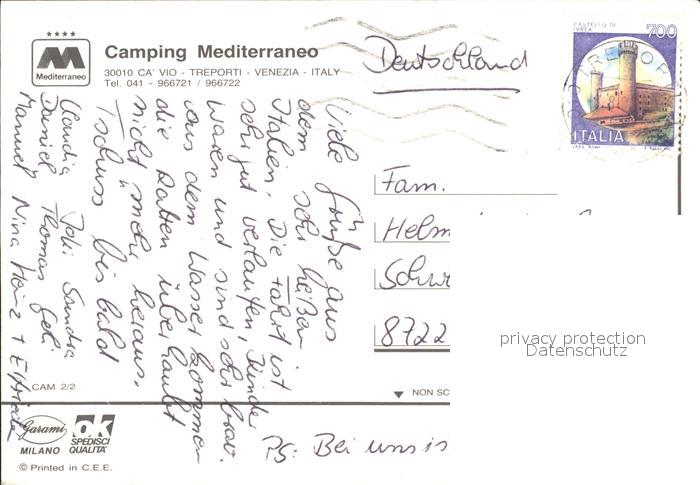 Mediterraneo
Camping Mediterraneo
30010 CA' VIO - TREPORTI - VENEZIA - ITALY
Tel. 041 - 966721 / 966722
Deutschland
CASTELLO DI IVREA
700
ITALIA
Viele Grüße aus
dem sehr heißen
Italien. Die Fahrt ist
sehr gut verlaufen, Kinder
waren und sind sehr brav.
aus dem Wasser kommen
die Ratten überhaupt
nicht mehr heraus.
Tschüss bis bald
Claudia Sandra
Daniel Thomas
Manuel Nina Heinz + Elfriede
PS: Bei uns is
Fam.
Helm
Schw
8722
privacy protection
Datenschutz
CAM 2/2
NON SC
Garami
MILANO
ok
SPEDISCI
QUALITA'
© Printed in C.E.E.